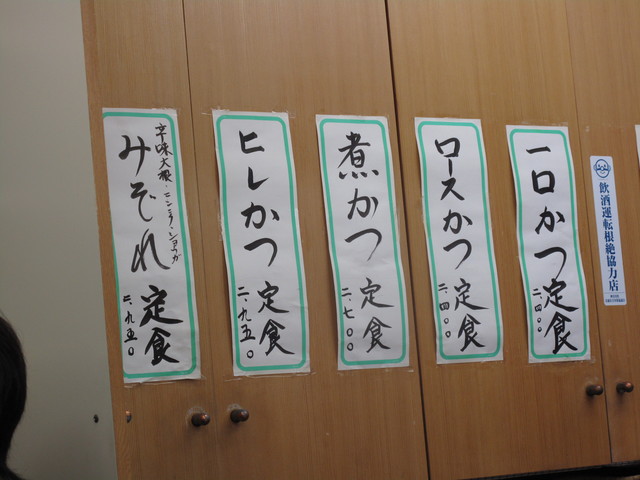 飲酒運転根絶協力店
一口かつ定食
二、四〇〇
ロースかつ定食
二、四〇〇
煮かつ定食
二、七〇〇
ヒレかつ定食
二、九五〇
辛味大根・ニンニク・ショウガ
みぞれ定食
二、九五〇